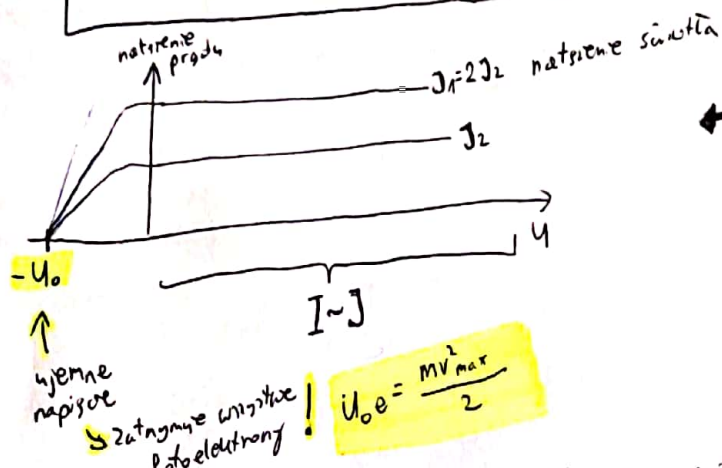 natężenie
prądu
J₁=2J₂ natężenie światła
J₂
U
-U₀
I~J
ujemne
napięcie
zatrzymuje wszystkie
fotoelektrony
!
U₀e = mv²max / 2